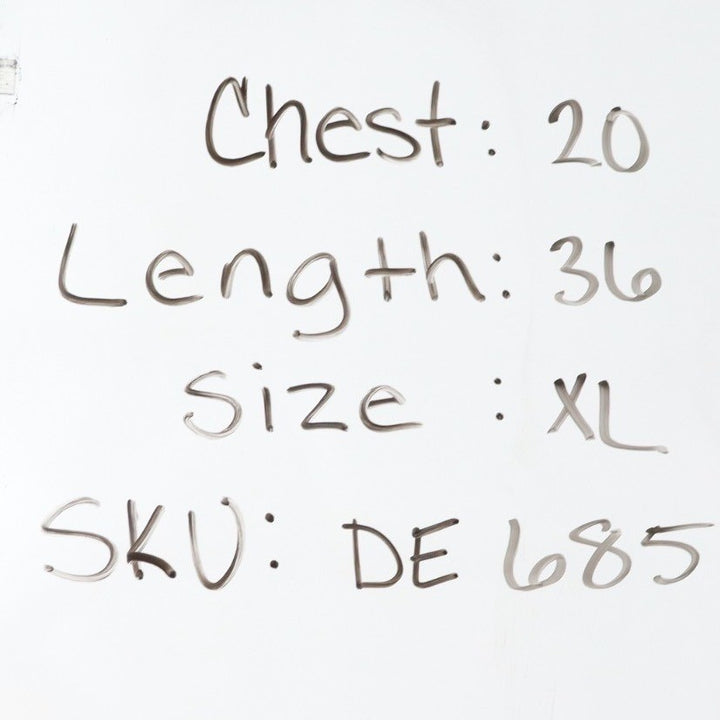 Chest: 20
Length: 36
Size : XL
SKU: DE 685